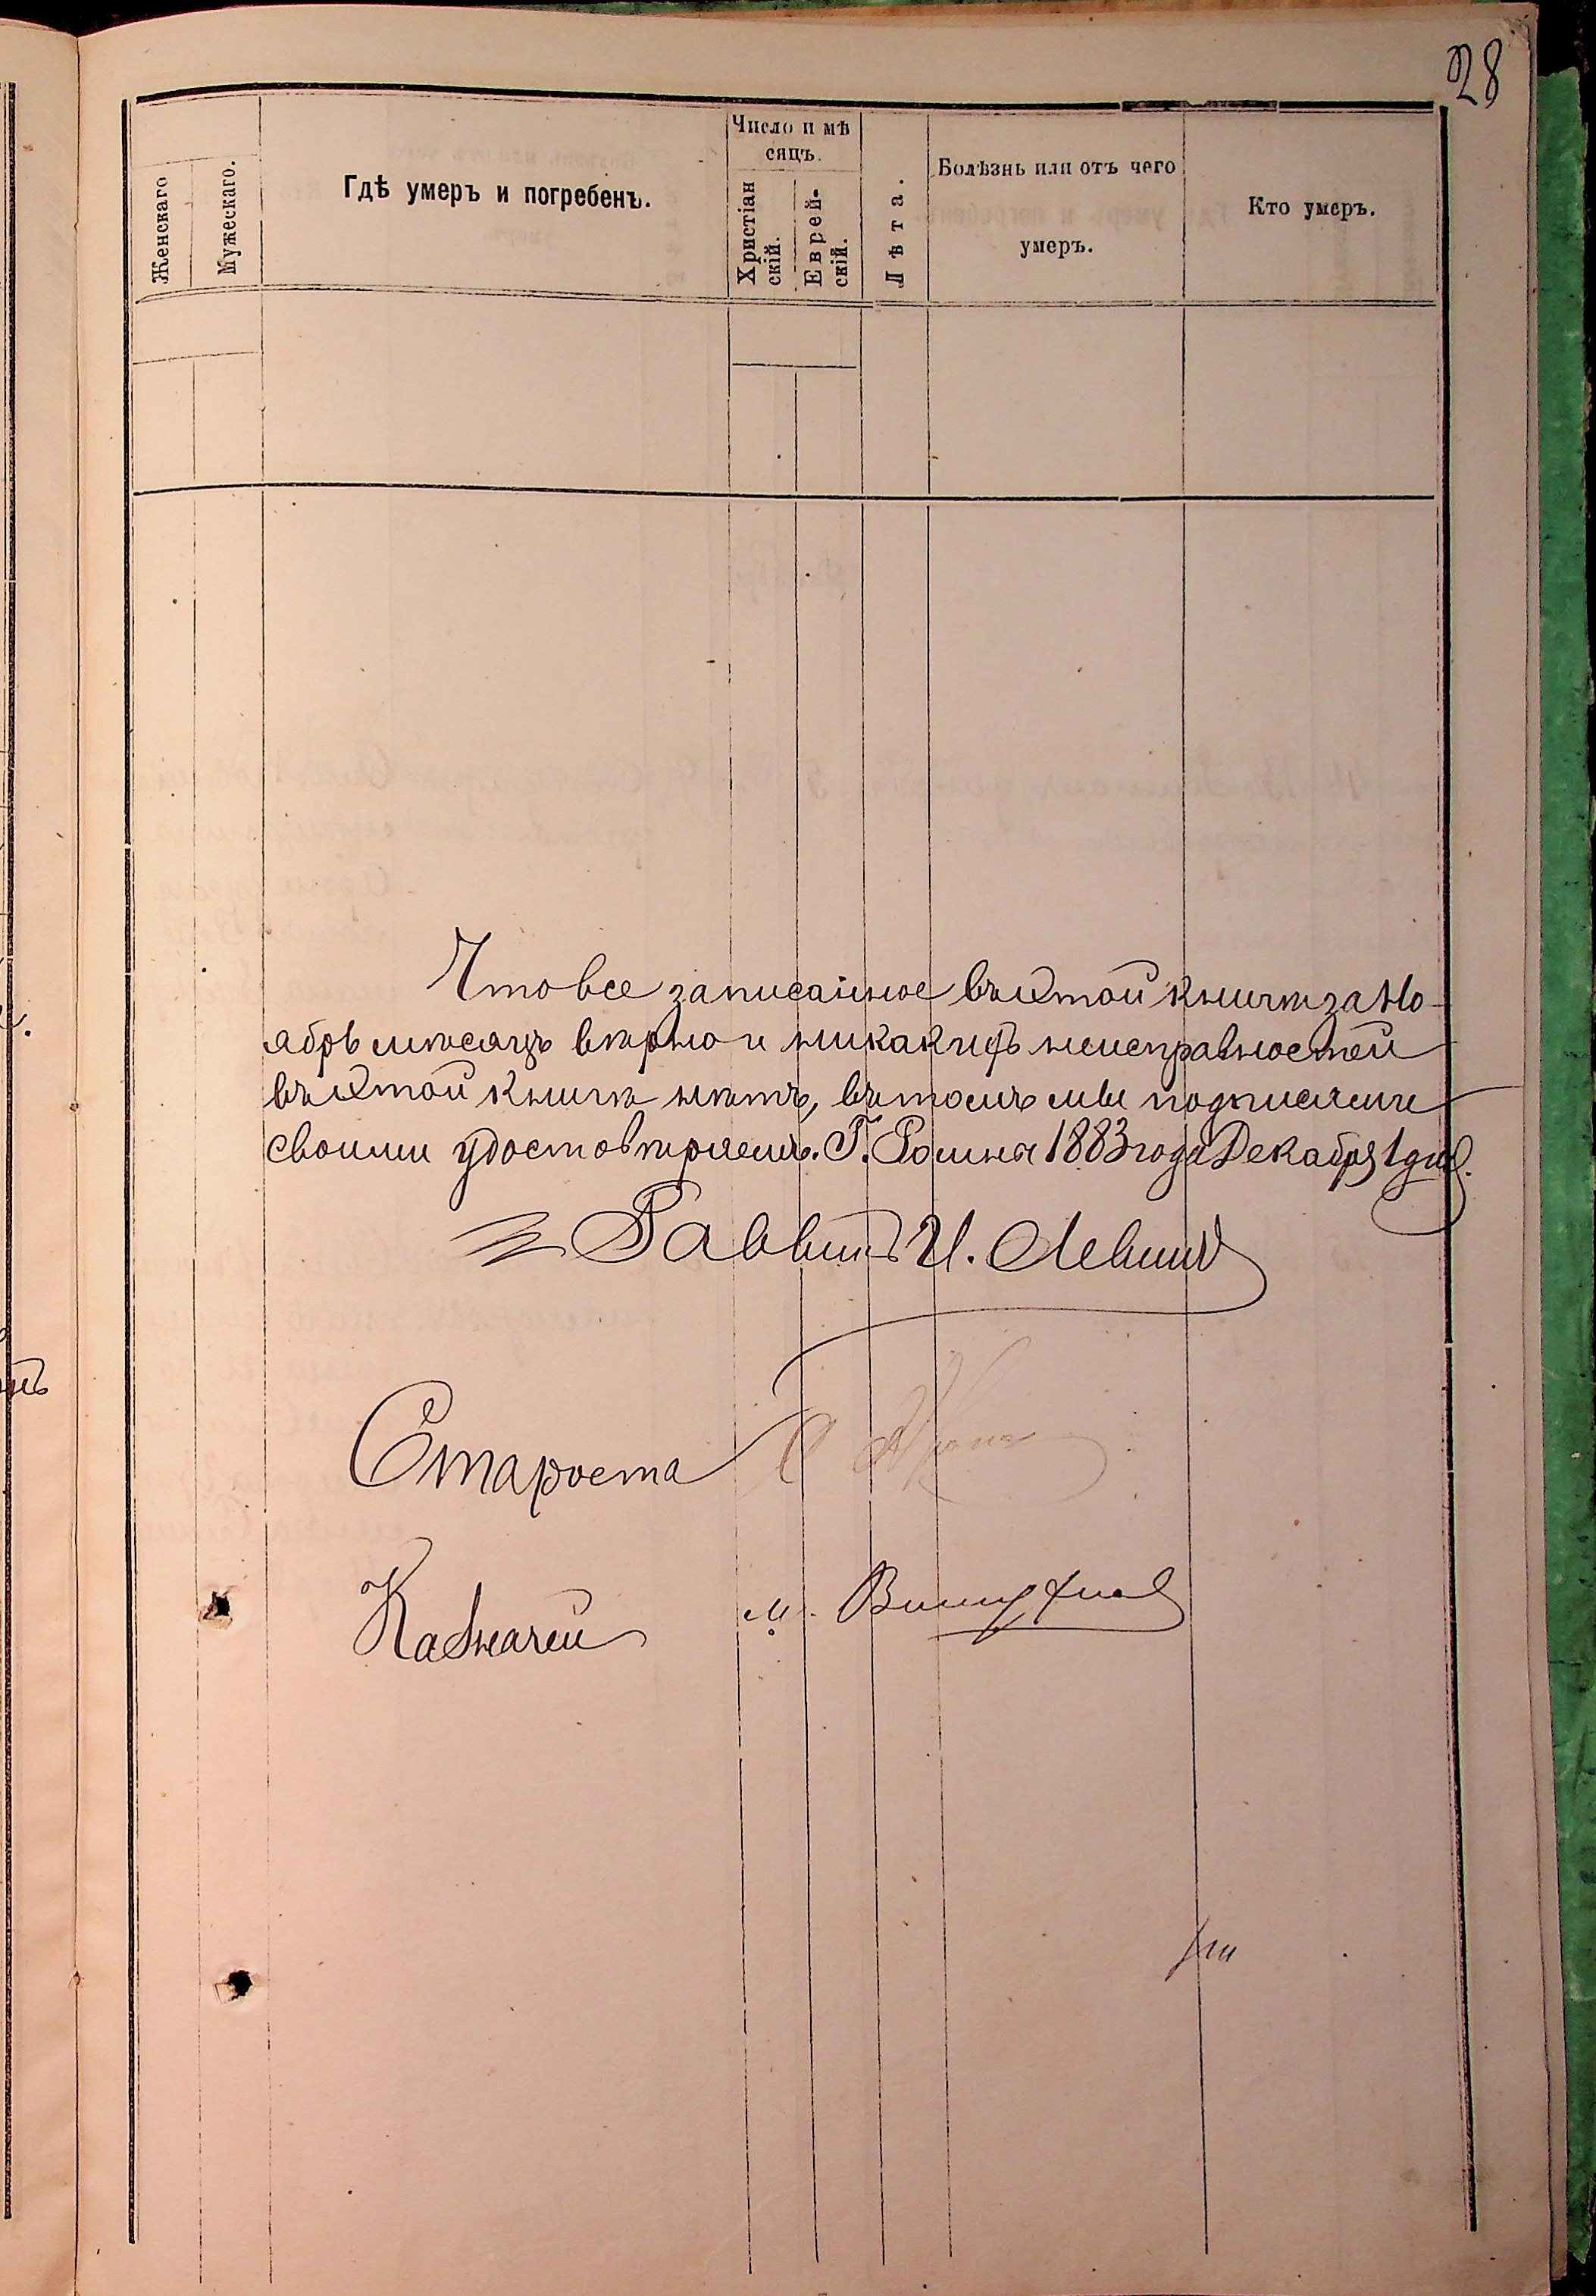 28
Женскаго
Мужескаго.
Гдѣ умеръ и погребенъ.
Число и мѣ
сяцъ.
Христіан
скій.
Еврей-
скій.
Лѣта.
Болѣзнь или отъ чего
умеръ.
Кто умеръ.
Что все записанное въ этой книгѣ за Но-
ябрь мѣсяцъ вѣрно и никакихъ неисправностей
въ этой книгѣ нѣтъ, въ томъ мы подписями
своими удостовѣряемъ. Г. Ромна 1883 года Декабря 1 дня.
Раввинъ И. Левинъ
Староста
Казначей М.